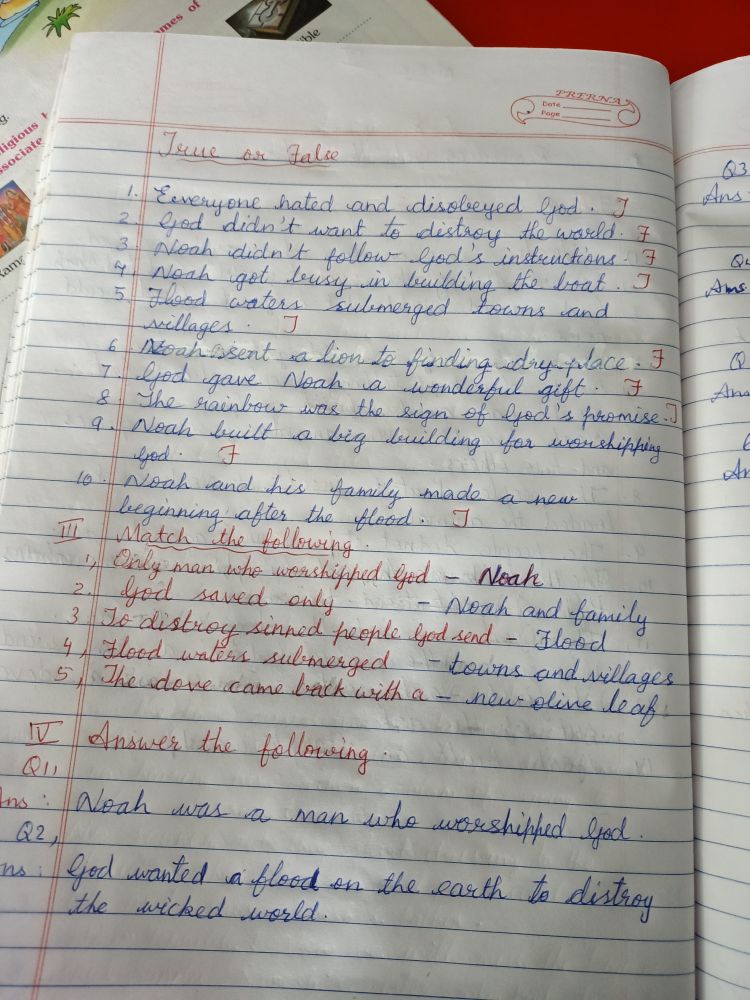 mes of
ible
ng.
ligious
ssociate
Rama
PRERNA
Date
Page
True or False
1. Eeveryone hated and disobeyed God. T
2 God didn't want to distroy the world. F
3 Noah didn't follow God's instructions. F
4 Noah got busy in building the boat. T
5. Flood waters submerged towns and
villages. T
6 Noah sent a lion to finding dry place. F
7. God gave Noah a wonderful gift. F
8 The rainbow was the sign of God's promise. T
9. Noah built a big building for worshipping
God. F
10. Noah and his family made a new
beginning after the flood. T
III Match the following.
1, Only man who worshipped God – Noah
2. God saved only – Noah and family
3 To distroy sinned people God send – Flood
4, Flood waters submerged – towns and villages
5, The dove came back with a – new olive leaf.
IV Answer the following.
Q1,
Ans: Noah was a man who worshipped God.
Q2,
ns: God wanted a flood on the earth to distroy
the wicked world.
Q3
Ans
Q
Ans
Q
Ans
An